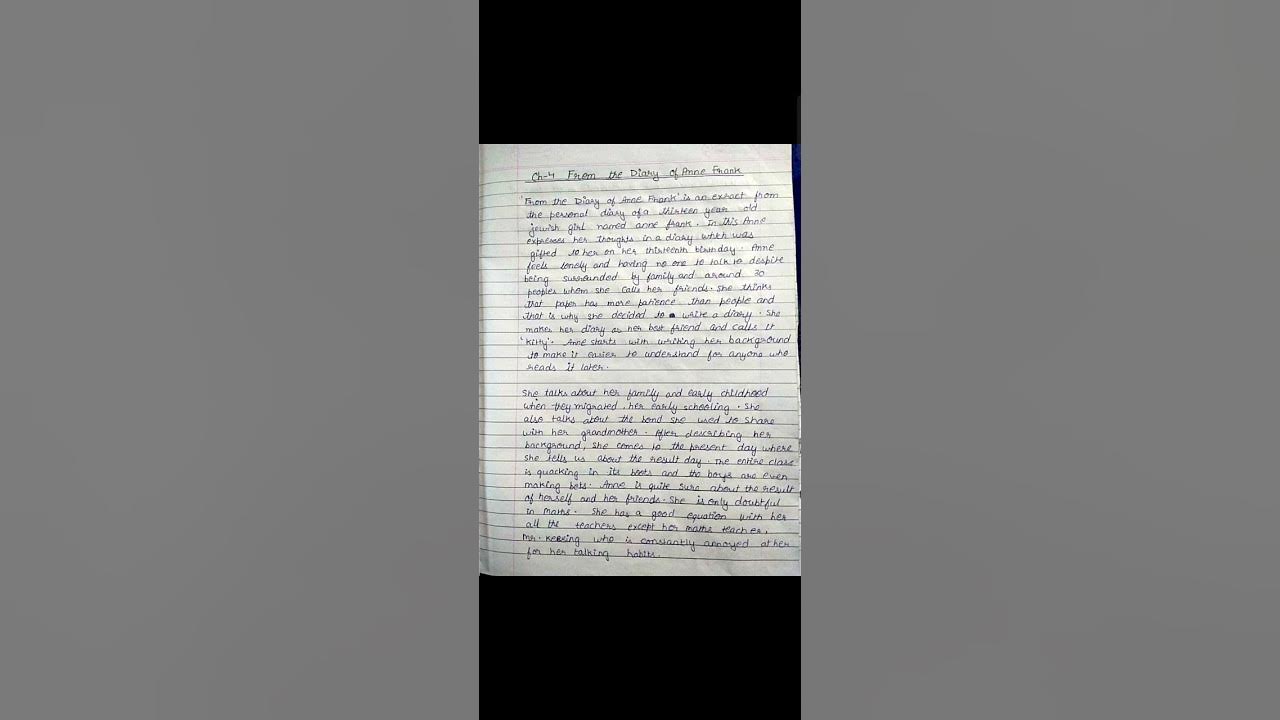 Ch-4 From the Diary of Anne Frank
'From the Diary of Anne Frank' is an exract from
the personal diary of a thirteen year old
jewish girl named anne frank. In this Anne
expresses her thoughts in a diary which was
gifted to her on her thirteenth birthday. Anne
feels lonely and having no one to talk to despite
being surrounded by family and around 30
peoples whom she calls her friends. She thinks
that paper has more patience than people and
that is why she decided to write a diary. She
makes her diary as her best friend and calls it
'Kitty'. Anne starts with writing her background
to make it easier to understand for anyone who
reads it later.
She talks about her family and early childhood
when they migrated, her early schooling. She
also talks about the bond she used to share
with her grandmother. After describing her
background, she comes to the present day where
she tells us about the result day. The entire class
is quacking in its boots and the boys are even
making bets. Anne is quite sure about the result
of herself and her friends. She is only doubtful
in maths. She has a good equation with her
all the teachers except her maths teacher,
Mr. Keesing who is constantly annoyed at her
for her talking habits.